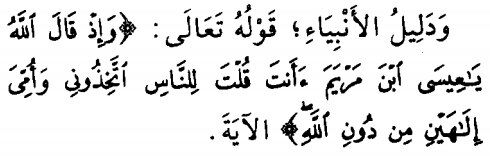 وَدَلِيلُ الأَنْبِيَاءِ؛ قَوْلُهُ تَعَالَى: ﴿وَإِذْ قَالَ ٱللَّهُ
يَٰعِيسَى ٱبْنَ مَرْيَمَ ءَأَنتَ قُلْتَ لِلنَّاسِ ٱتَّخِذُونِي وَأُمِّيَ
إِلَٰهَيْنِ مِن دُونِ ٱللَّهِۖ﴾ الآيَةَ.